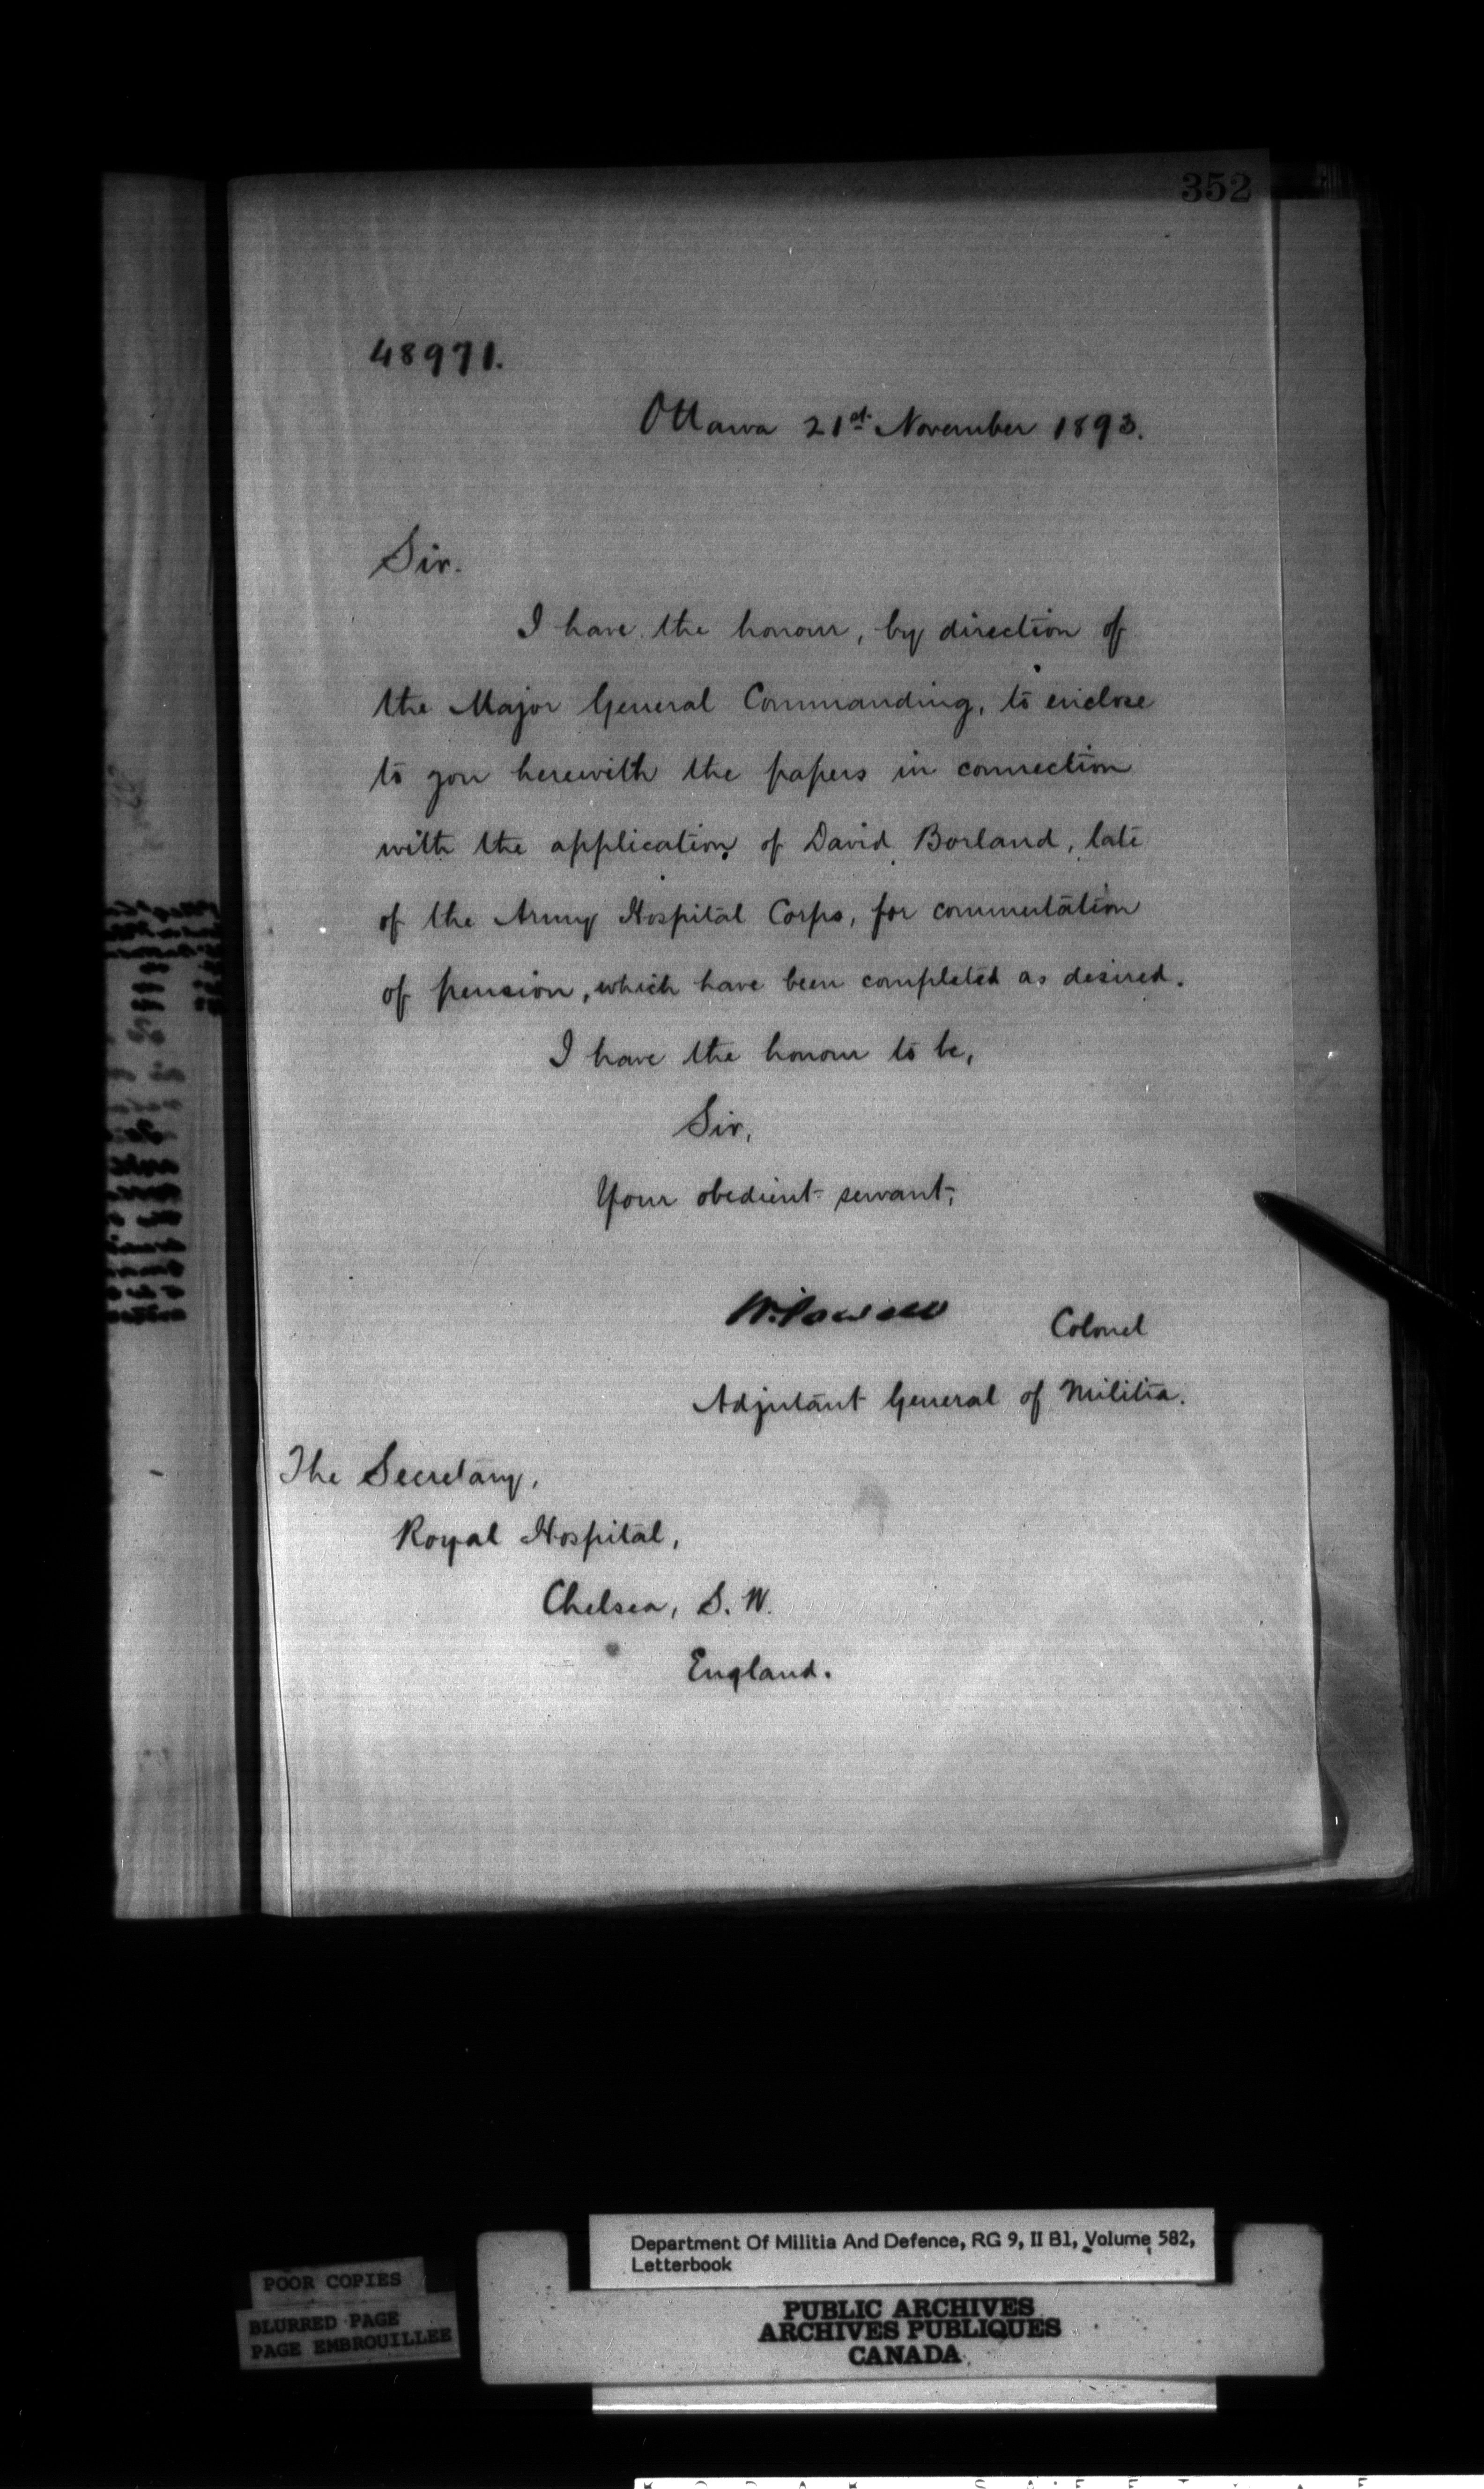 352
48971.
Ottawa 21st November 1893.
Sir.
I have the honour, by direction of
the Major General Commanding, to enclose
to you herewith the papers in connection
with the application of David Borland, late
of the Army Hospital Corps, for commutation
of pension, which have been completed as desired.
I have the honour to be,
Sir,
Your obedient servant,
W. Powell Colonel
Adjutant General of Militia.
The Secretary,
Royal Hospital,
Chelsea, S. W.
England.
Department Of Militia And Defence, RG 9, II B1, Volume 582,
Letterbook
POOR COPIES
BLURRED PAGE
PAGE EMBROUILLEE
PUBLIC ARCHIVES
ARCHIVES PUBLIQUES
CANADA